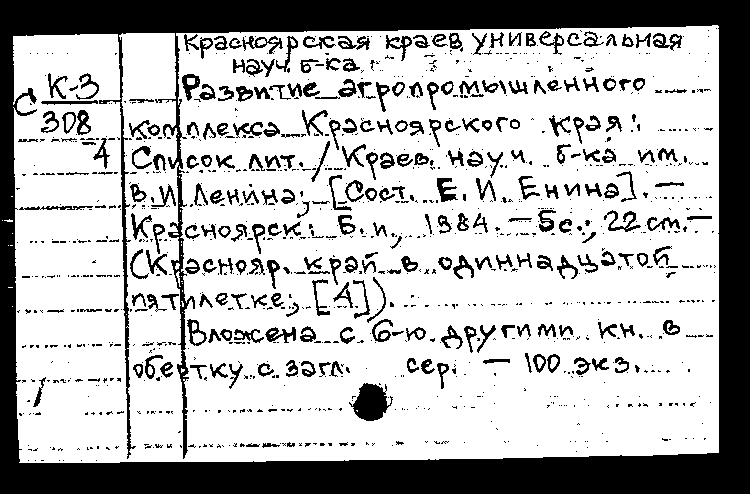 Красноярская краев. универсальная
науч. б-ка
С К-3
308
-4
Развитие агропромышленного
комплекса Красноярского края:
Список лит. / Краев. науч. б-ка им.
В.И Ленина; [Сост. Е. И. Енина]. —
Красноярск: Б. и., 1984. — 5 с.; 22 см. —
(Краснояр. край в одиннадцатой
пятилетке; [4]).
Вложена с 6-ю другими кн. в
обертку с загл. сер. — 100 экз.